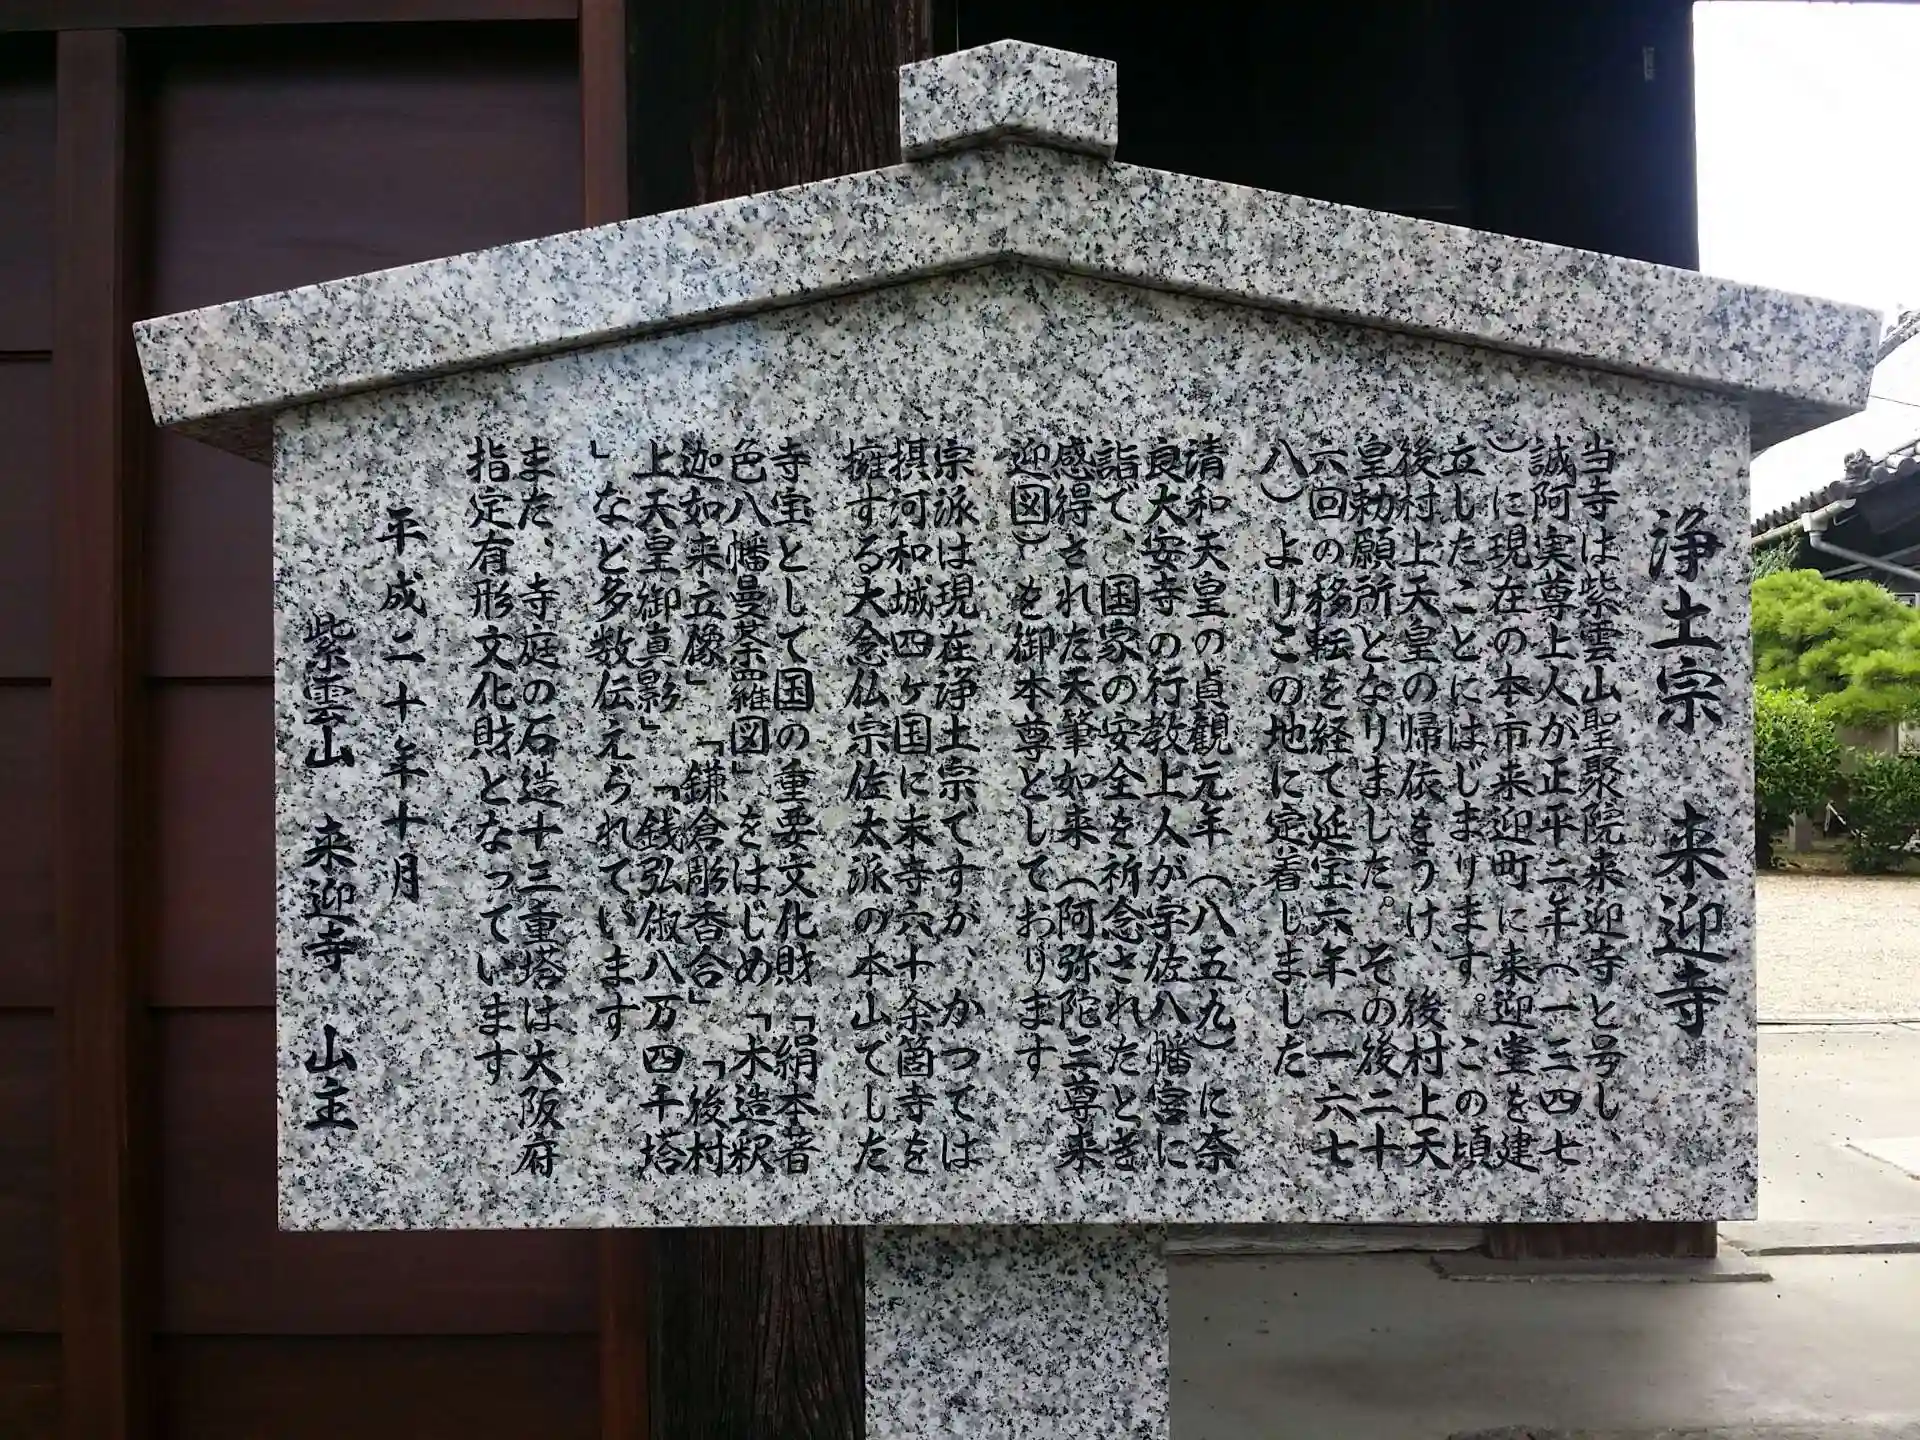 浄土宗 来迎寺
当寺は紫雲山聖聚院来迎寺と号し、
誠阿実尊上人が正平二年(一三四七
)に現在の本市来迎町に来迎堂を建
立したことにはじまります。この頃
後村上天皇の帰依をうけ、後村上天
皇勅願所となりました。その後二十
六回の移転を経て延宝六年(一六七
八)よりこの地に定着しました
清和天皇の貞観元年(八五九)に奈
良大安寺の行教上人が宇佐八幡宮に
詣て、国家の安全を祈念されたとき
感得された天筆如来(阿弥陀三尊来
迎図)を御本尊としております
宗派は現在浄土宗ですが、かつては
摂河和城四ヶ国に末寺六十余箇寺を
擁する大念仏宗佐太派の本山でした
寺宝として国の重要文化財「絹本著
色八幡曼荼羅図」をはじめ「木造釈
迦如来立像」「鎌倉彫香合」「後村
上天皇御真影」「銭弘俶八万四千塔
」など多数伝えられています
また、寺庭の石造十三重塔は大阪府
指定有形文化財となっています
平成二十年十月
紫雲山 来迎寺 山主